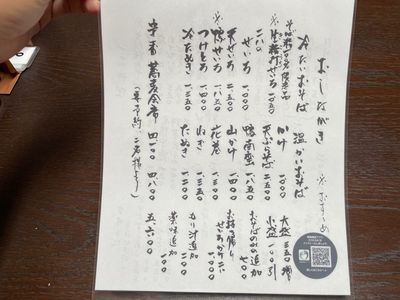 おしながき
※おすすめ
冷たいおそば
※生粉打ちせいろ 一〇五〇
二八
せいろ 一〇〇〇
天せいろ 二一五〇
※鴨せいろ 一八五〇
つけとろ 一四〇〇
冷たぬき 一三五〇
温かいおそば
かけ 一〇〇〇
天ぷらそば 二一五〇
鴨南蛮 一八五〇
山かけ 一四〇〇
花巻 一三五〇
ねぎ 一三五〇
たぬき 一三五〇
大盛 三五〇増
小盛 一〇〇引
おそばのみの追加 七〇〇
もり汁追加 一〇〇
薬味追加 一〇〇
蕎麦会席 四一〇〇 四八〇〇 五六〇〇
(要予約 二名様より)